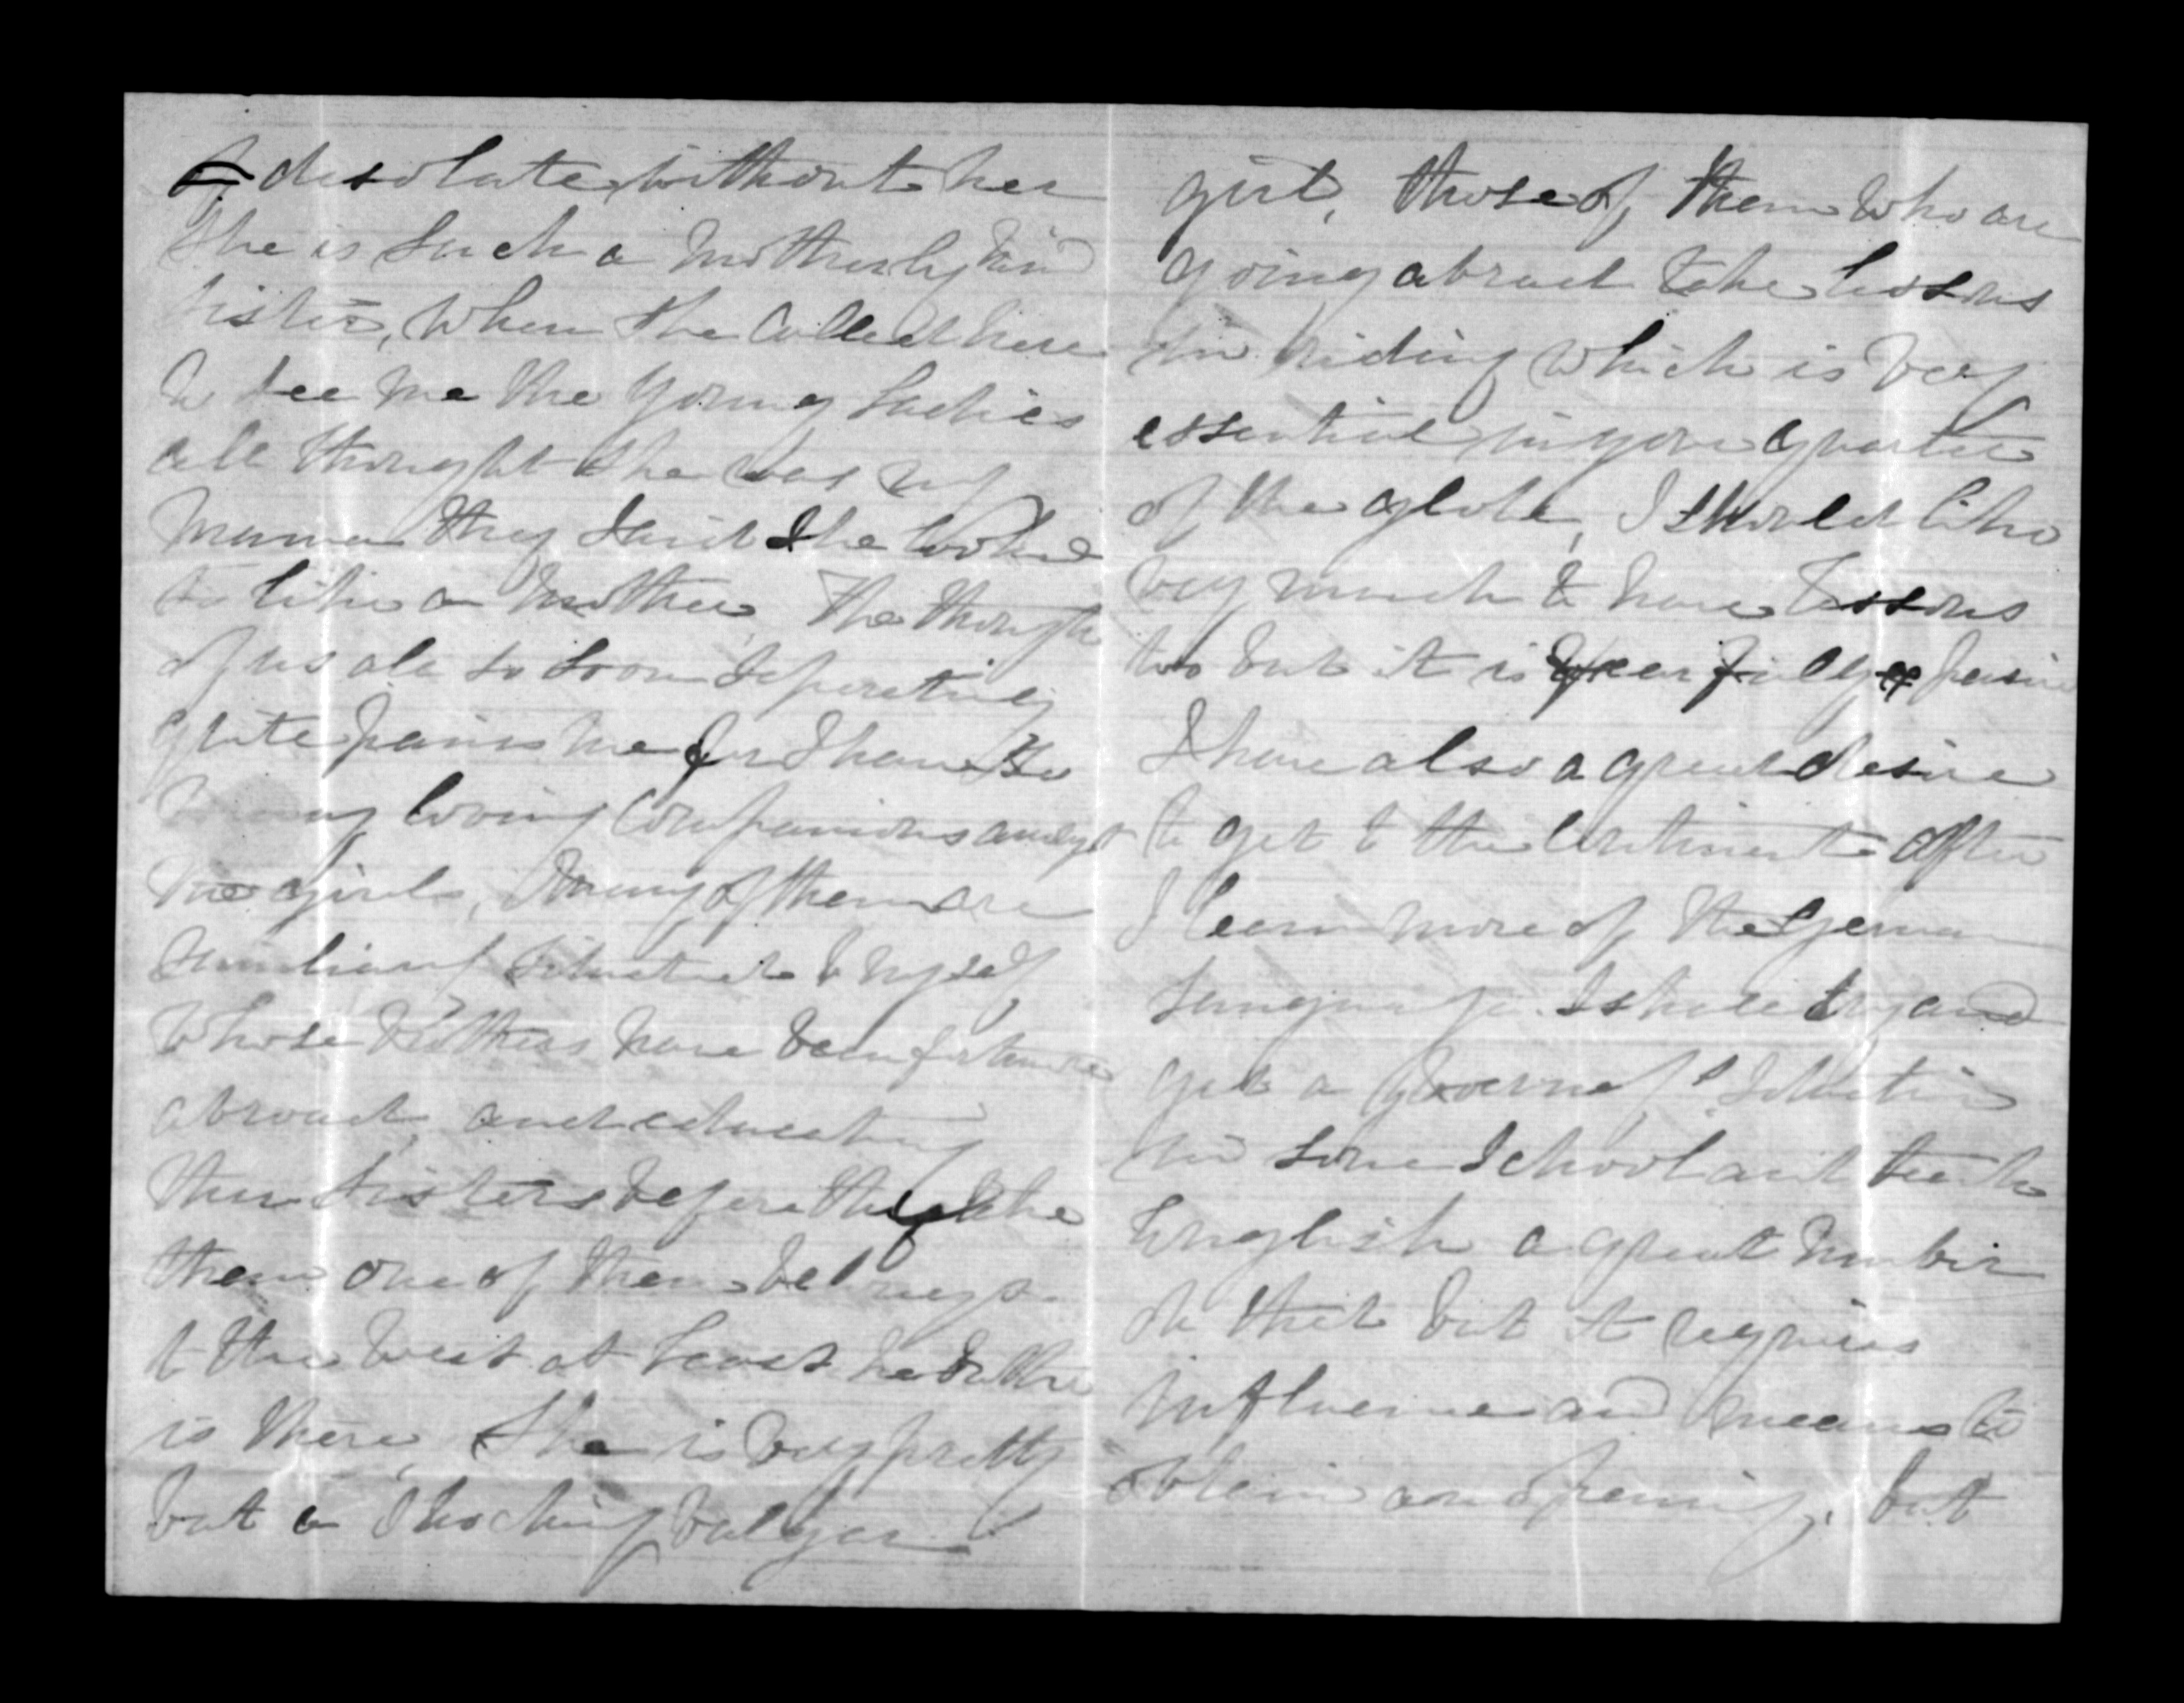 desolate without her
She is such a motherly kind
sister, when she called here
to see me the young ladies
all thought she was my
mama they said she looked
so like a mother. The though
of us all so soon seperating
quite pains me for I have so
many loving companions amongst
the girls, many of them are
similiarly situated to myself
whose brothers have been
abroad, and educating
their sisters before they take
them one of them belongs
to the west at least her brother
is there, she is very pretty
but a shocking vulgar
girl, those of them who are
going abroad take lessons
in riding which is very
essential in your quarter
of the globe, I should like
very much to have lessons
too but it is fearfully expensive
I have also a great desire
to get to the continent after
I learn more of the German
language. I shall try and
get a situation
in some school and teach
English a great number
do that but it requires
influence and means to
obtain an opening, but